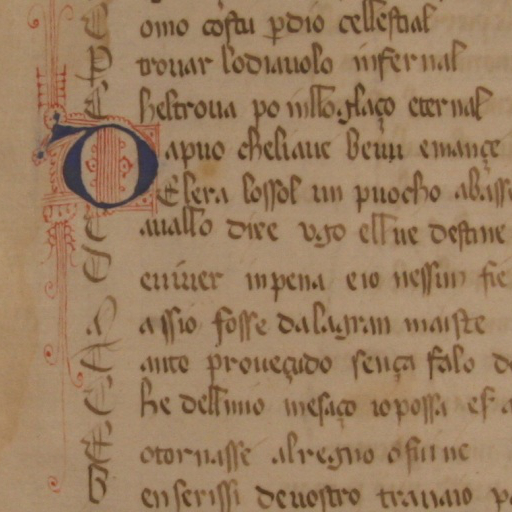 omo cõstu pdio cellestial
trouar lodiauolo infernal
heltroua po inllo glaço eternal
D apuo cheliaue beuu emançe
Elera lossol un puocho abasse
auallo dire vgo ell ue destine
eviuer inpena eio nessun fie
assio fosse dalagran maiste
anto proueçudo sença falo de
he dell mio mesaço iopossa es a
otornasse alregno ofui ne
enserissi deuostro trauaio pe